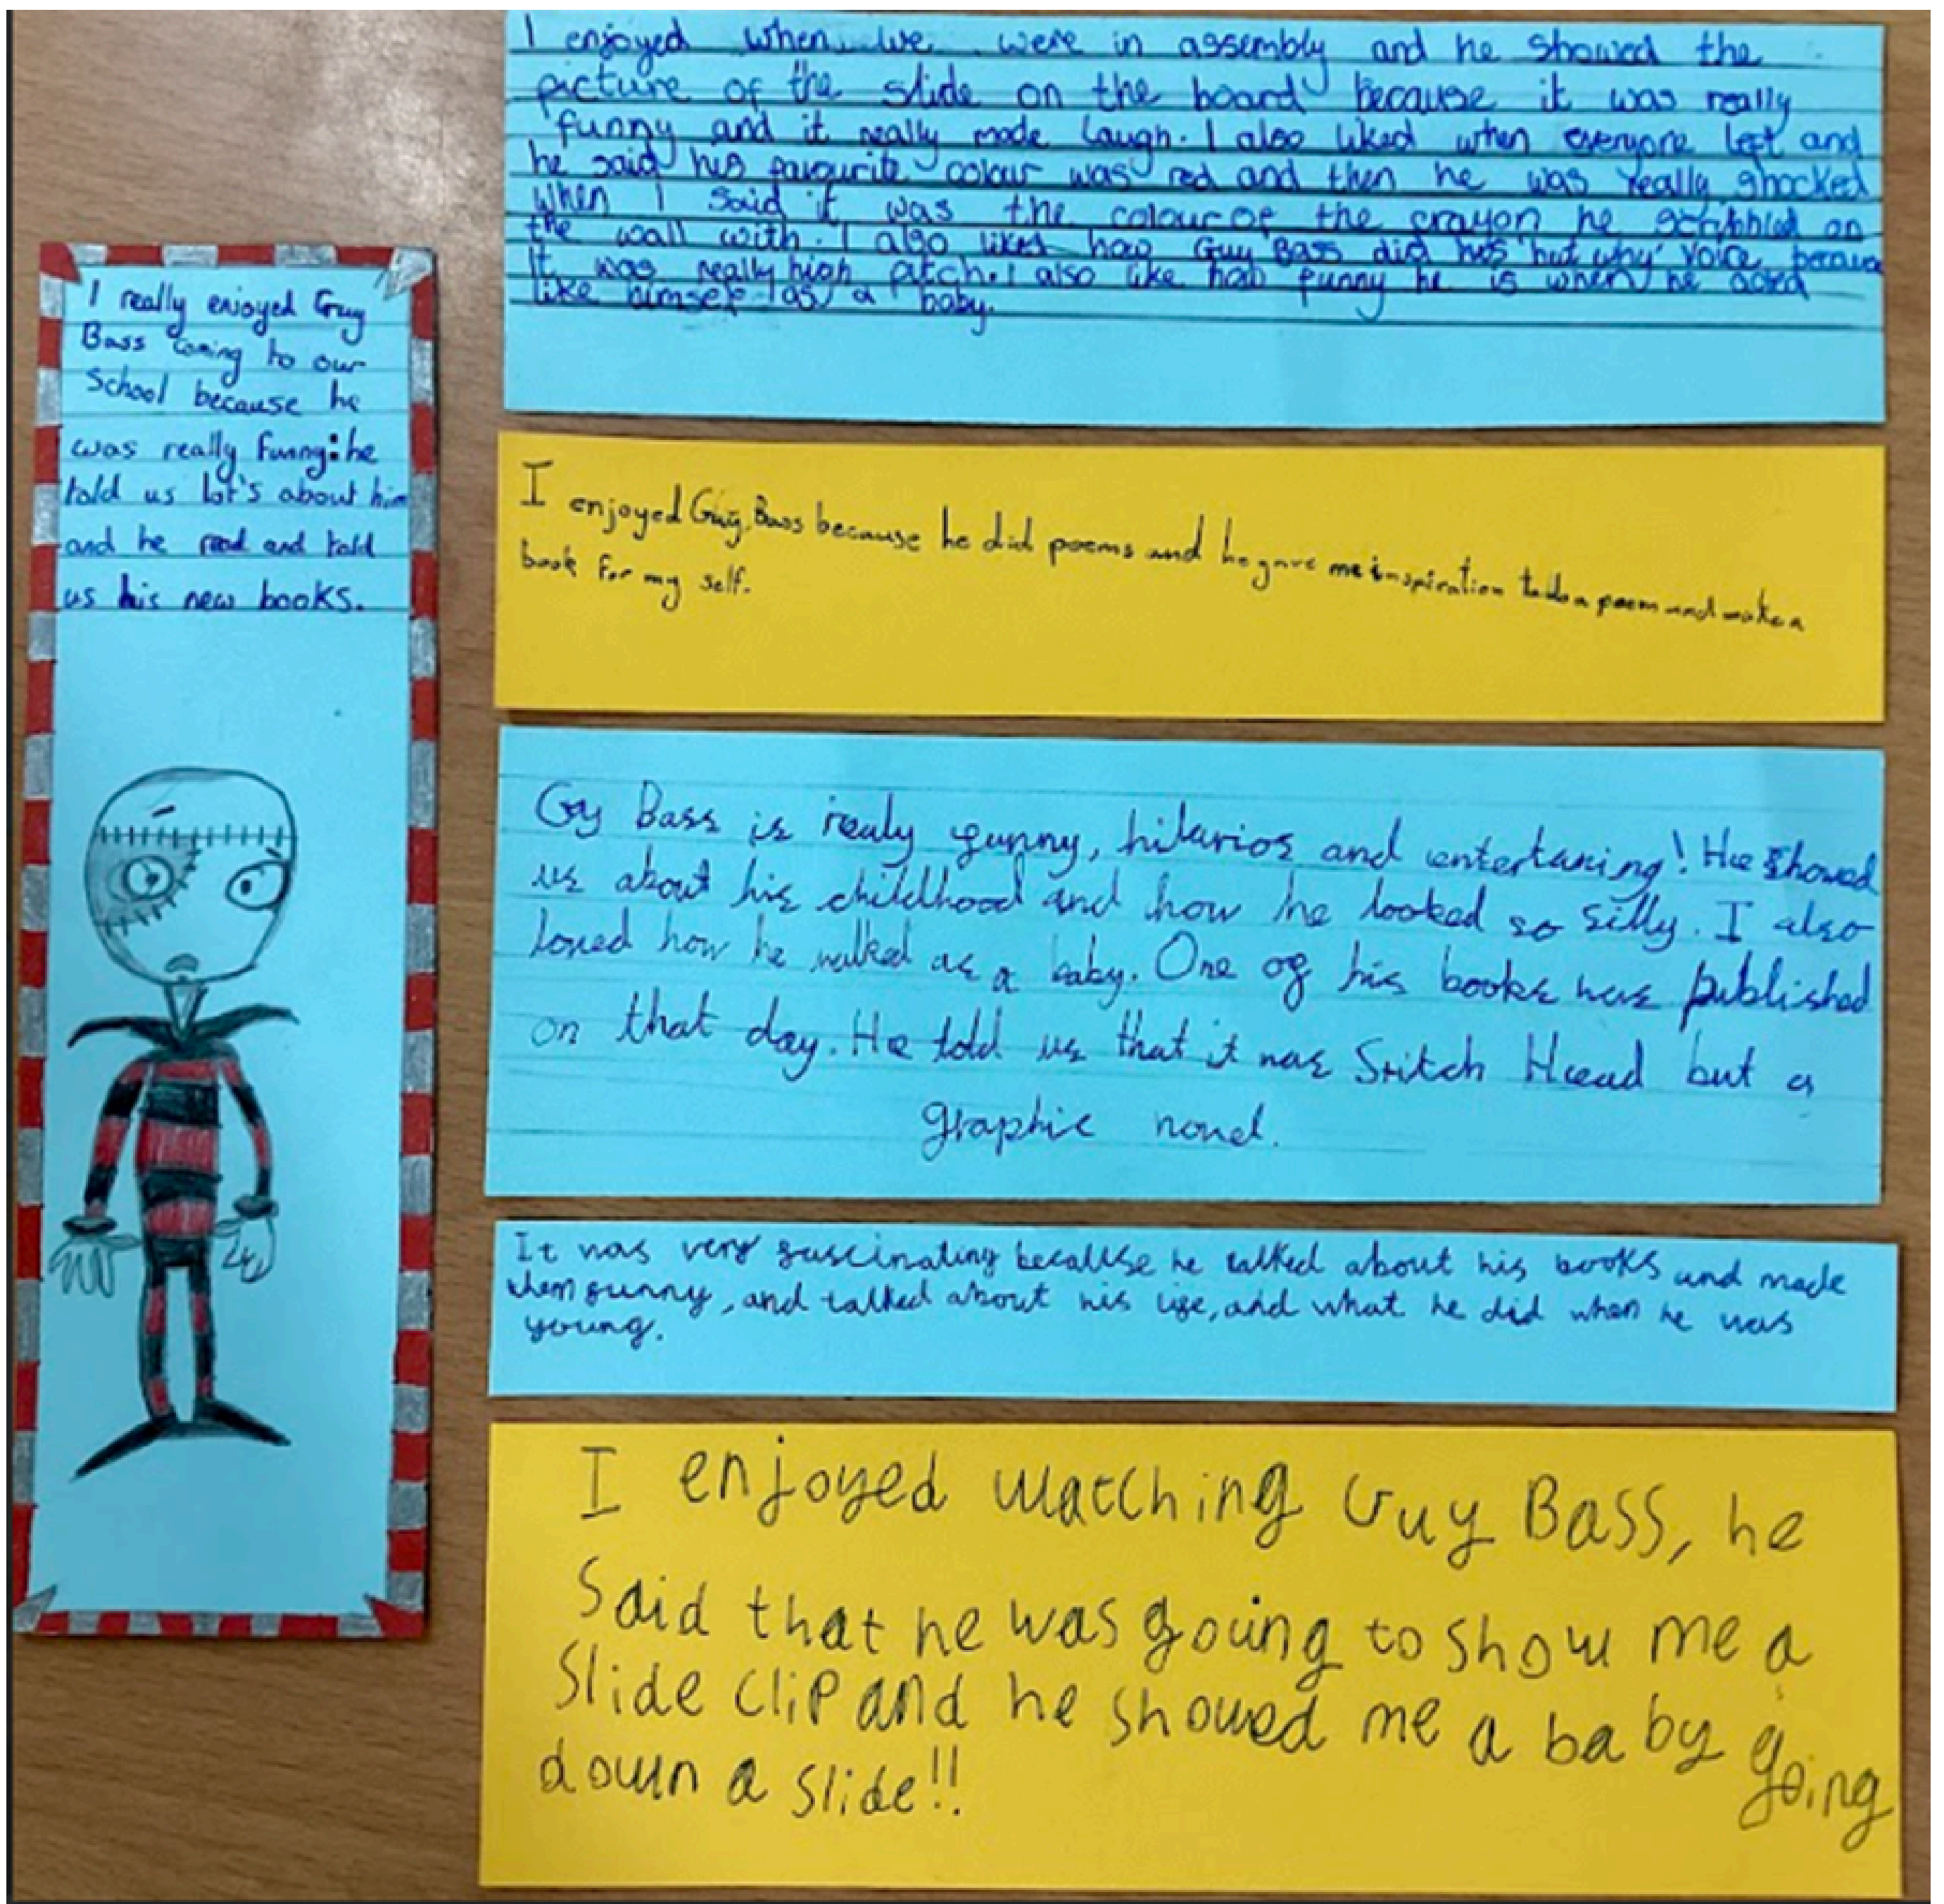 I really enjoyed Guy
Bass coming to our
School because he
was really funny: he
told us lot's about him
and he read and told
us his new books.
I enjoyed when we were in assembly and he showed the
picture of the slide on the board because it was really
funny and it really made laugh. I also liked when everyone left and
he said his favourite colour was red and then he was really shocked
when I said it was the colour of the crayon he scribbled on
the wall with. I also likes how Guy Bass did his 'but why' voice because
It was really high pitch. I also like how funny he is when he acted
like himself as a baby.
I enjoyed Guy Bass because he did poems and he gave me inspiration to do a poem and make a
book for my self.
Guy Bass is realy funny, hilarios and entertaning! He showed
us about his childhood and how he looked so silly. I also
loved how he walked as a baby. One of his books was published
on that day. He told us that it was Stitch Head but a
graphic novel.
It was very fascinating because he talked about his books and made
them funny, and talked about his life, and what he did when he was
young.
I enjoyed watching Guy Bass, he
Said that he was going to show me a
Slide clip and he showed me a baby going
down a slide!!